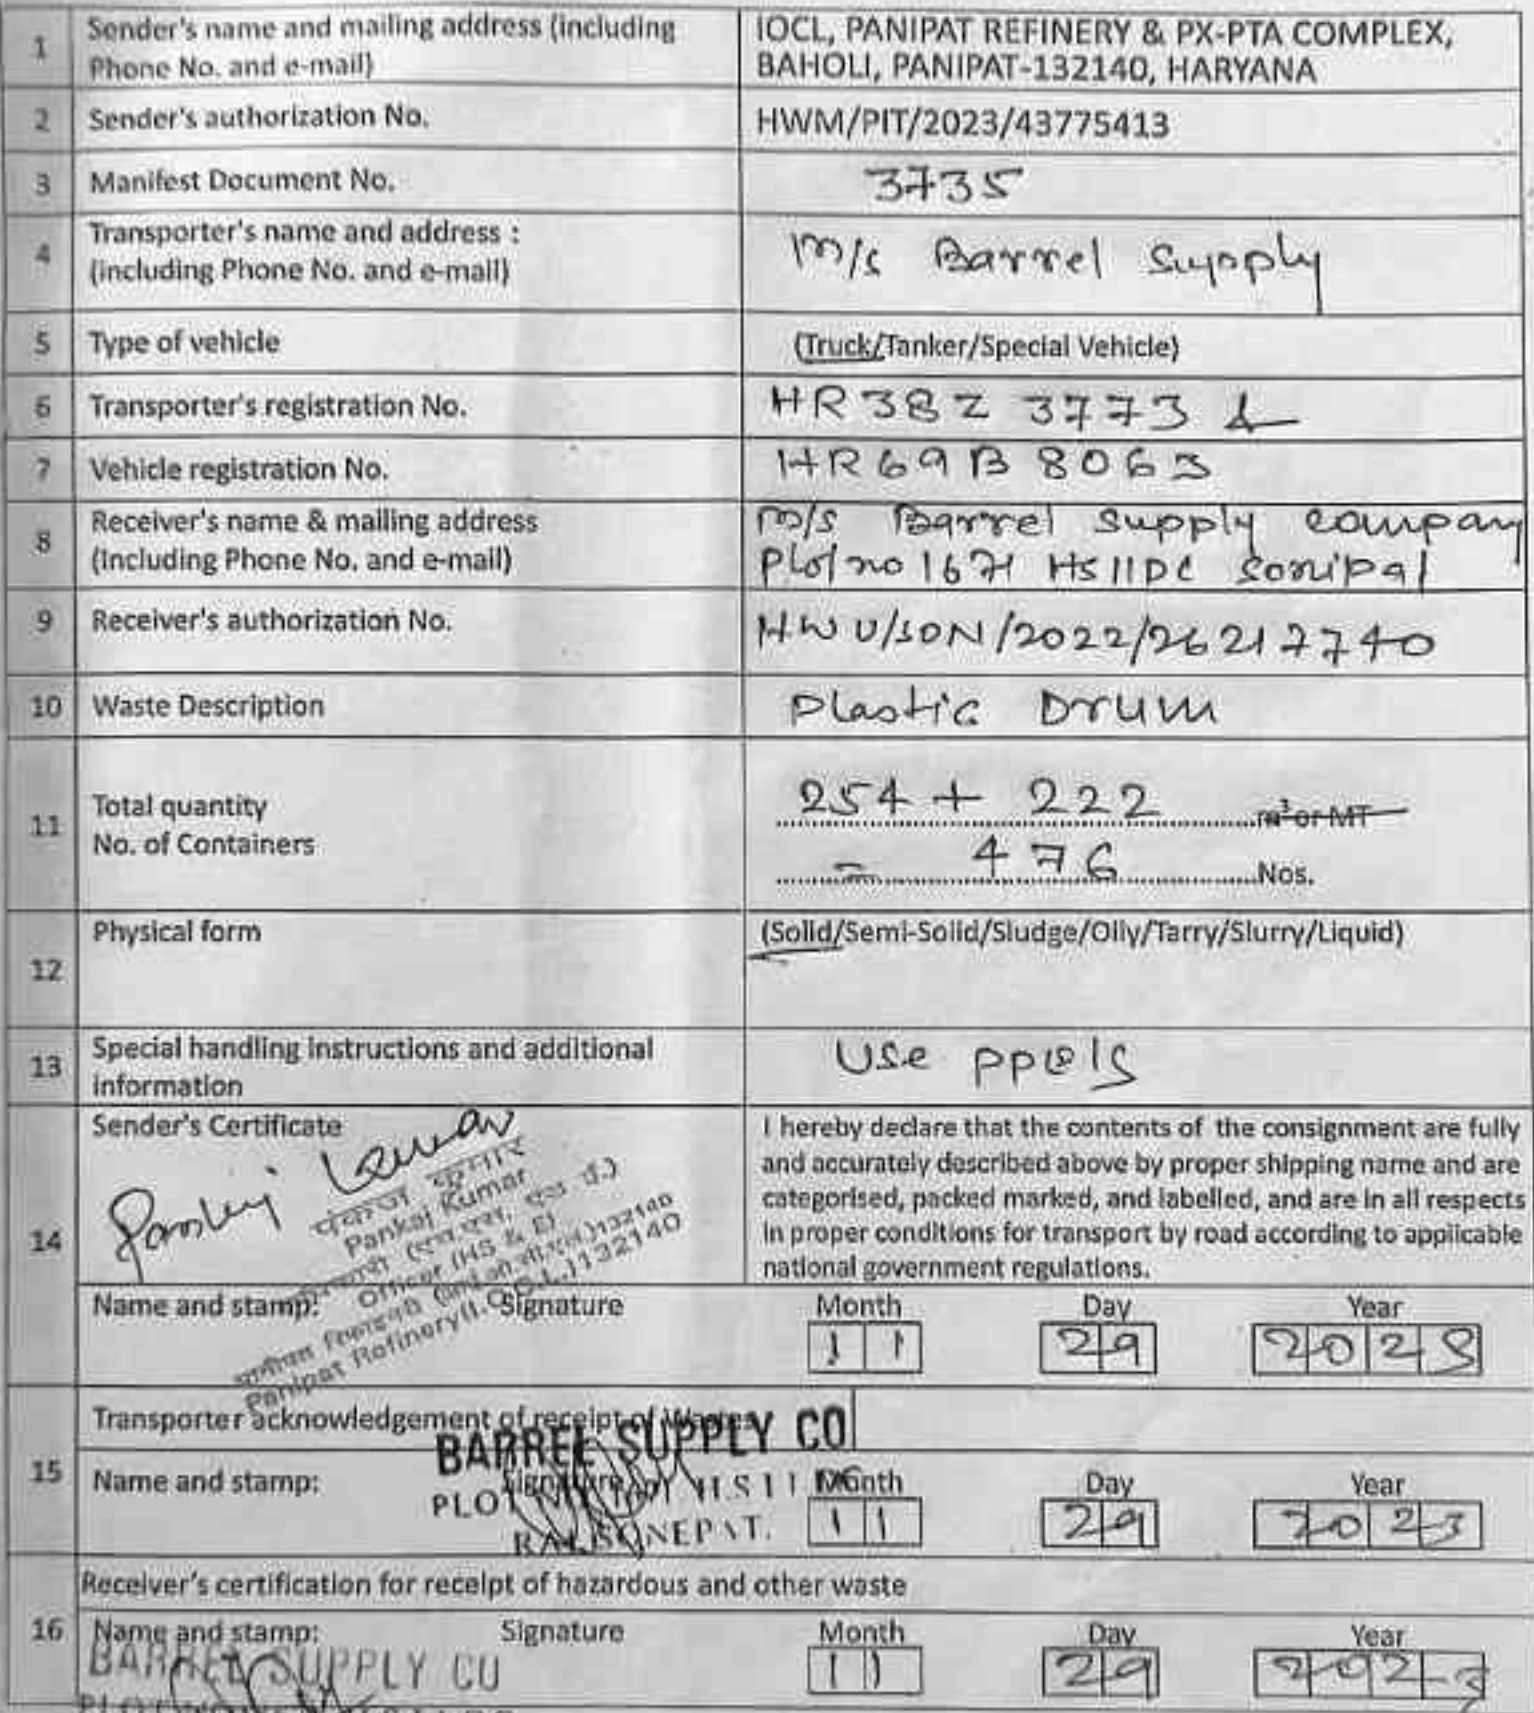 1 Sender's name and mailing address (including Phone No. and e-mail)
IOCL, PANIPAT REFINERY & PX-PTA COMPLEX,
BAHOLI, PANIPAT-132140, HARYANA
2 Sender's authorization No.
HWM/PIT/2023/43775413
3 Manifest Document No.
3735
4 Transporter's name and address :
(including Phone No. and e-mail)
M/s Barrel Supply
5 Type of vehicle
(Truck/Tanker/Special Vehicle)
6 Transporter's registration No.
HR38Z 3773
7 Vehicle registration No.
HR69B 8063
8 Receiver's name & mailing address
(Including Phone No. and e-mail)
M/s Barrel supply company
Plot no 1671 HSIIDC Sonipat
9 Receiver's authorization No.
HWU/SON/2022/26217740
10 Waste Description
Plastic Drum
11 Total quantity
No. of Containers
254 + 222 m³ or MT
= 476 Nos.
12 Physical form
(Solid/Semi-Solid/Sludge/Oily/Tarry/Slurry/Liquid)
13 Special handling instructions and additional
information
Use
14 Sender's Certificate
Pankaj Kumar
पंकज कुमार
Pankaj Kumar
Officer (HS & E)
Panipat Refinery(I.O.C.L.)132140
I hereby declare that the contents of the consignment are fully
and accurately described above by proper shipping name and are
categorised, packed marked, and labelled, and are in all respects
in proper conditions for transport by road according to applicable
national government regulations.
Name and stamp: Signature Month Day Year
11 29 2023
15 Transporter acknowledgement of receipt of Wastes
BARREL SUPPLY CO
Name and stamp: Signature Month Day Year
PLOT
SONEPAT.
11 29 2023
16 Receiver's certification for receipt of hazardous and other waste
Name and stamp: Signature Month Day Year
BARREL SUPPLY CO
11 29 2023